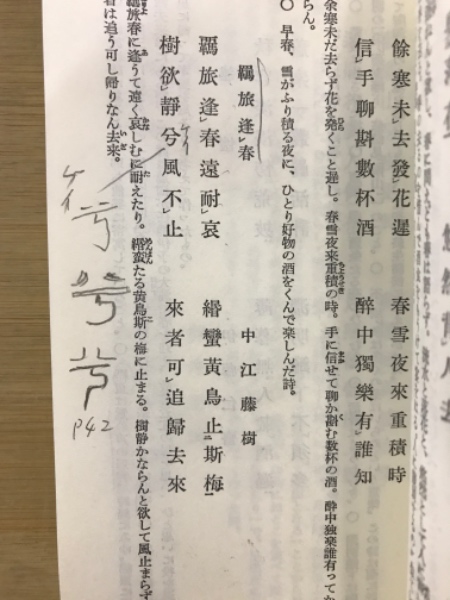 餘寒未去發花遲　春雪夜來重積時
信手聊斟數杯酒　醉中獨樂有誰知
余寒未だ去らず花を発くこと遅し。春雪夜来重積の時。手に信せて聊か斟む数杯の酒。酔中独楽誰有ってか
らん。
○　早春、雪がふり積る夜に、ひとり好物の酒をくんで楽しんだ詩。
羈旅逢春　中江藤樹
羈旅逢春遠耐哀　緡蠻黃鳥止斯梅
樹欲靜兮風不止　來者可追歸去來
羈旅春に逢うて遠く哀しむに耐えたり。緡蛮たる黄鳥斯の梅に止まる。樹静かならんと欲して風止まらず
者は追う可し帰りなん去来。
ケイ
ケイ
兮
P42